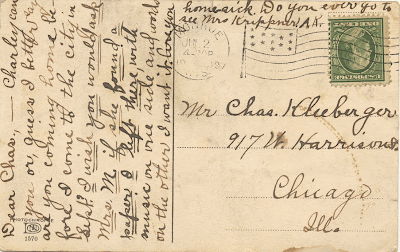 Dear Chas, — Charley can
you or, guess I better say
are you coming home be-
fore I come to the city in
Sept. I wish you would ask
Mrs. M if she found a
papers I left there with
music on one side and word
on the other I want it. Are you
home sick. Do you ever go to
see Mrs Krippner, A.K.
JUN 2
Mr Chas. Kleeberger
917 W. Harrison St.
Chicago
Ill.
1570